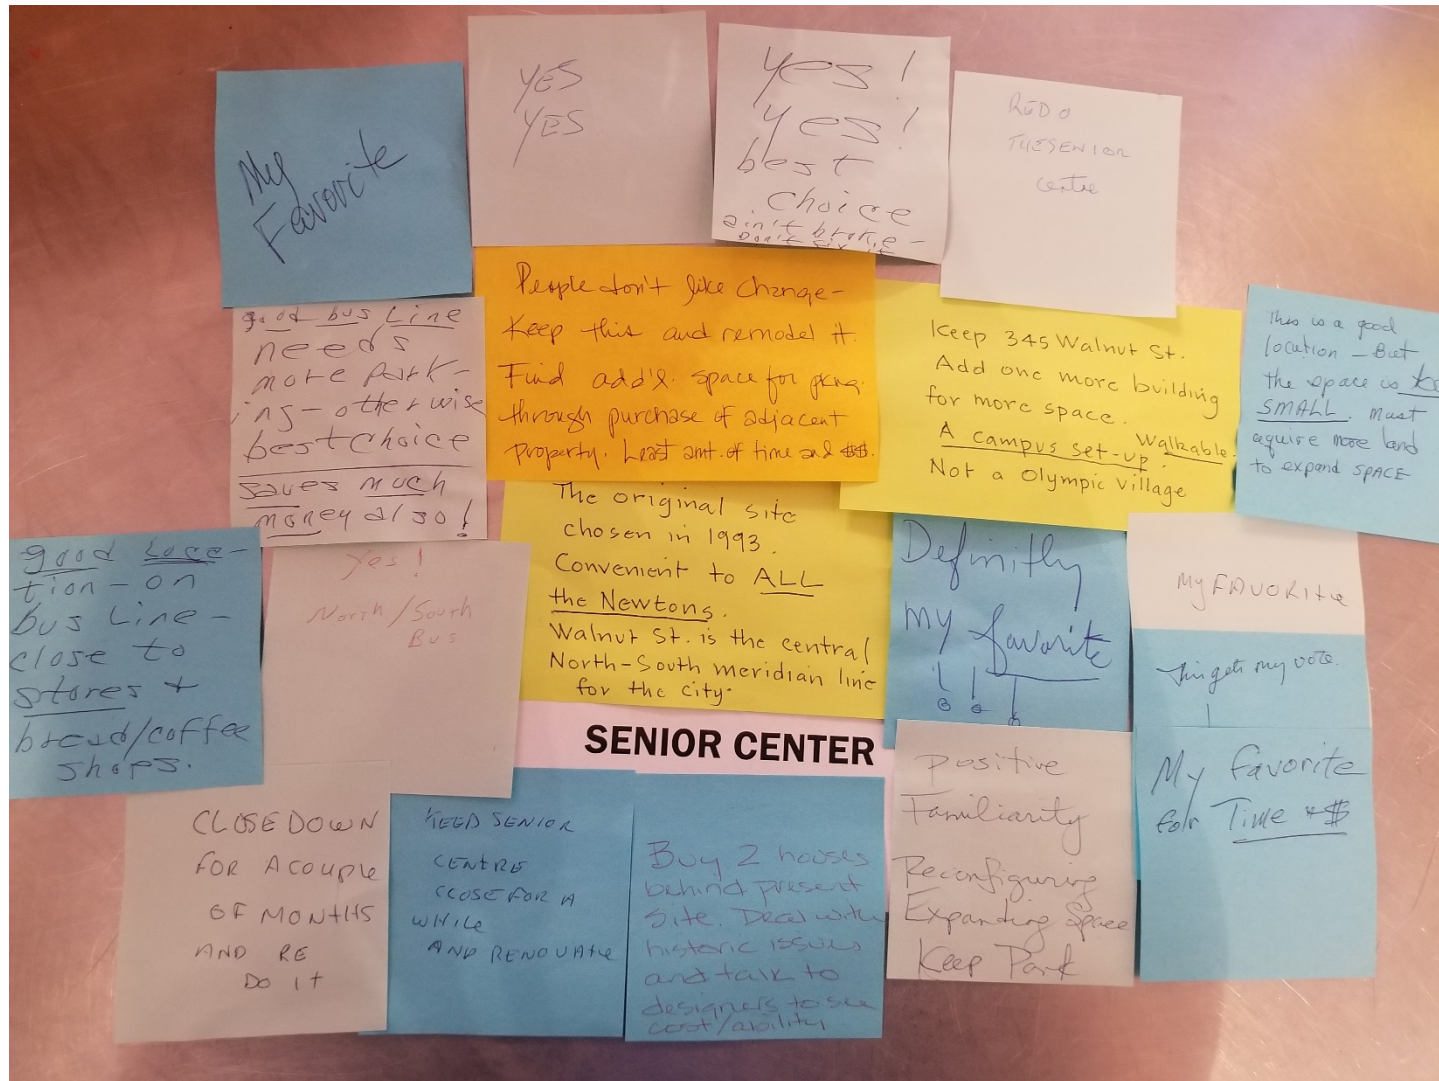 My
Favorite
YES
YES
yes!
yes!
best
choice
ain't broke -
Don't fix it
REDO
THE SENIOR
Centre
good bus Line
needs
more park-
ing - otherwise
best choice
saves much
money also!
People don't like change -
Keep this and remodel it.
Find add'l. space for pkng.
through purchase of adjacent
property. Least amt. of time and $$.
Keep 345 Walnut St.
Add one more building
for more space.
A campus set-up. Walkable.
Not a Olympic Village
This is a good
location - But
the space is
SMALL. Must
aquire more land
to expand SPACE
good loca-
tion - on
bus Line -
close to
stores +
bread/coffee
shops.
Yes!
North/South
Bus
The original site
chosen in 1993.
Convenient to ALL
the Newtons.
Walnut St. is the central
North-South meridian line
for the city.
Definitly
MY favorite
!!!
MY FAVORITE
This gets my vote.
SENIOR CENTER
CLOSE DOWN
FOR A COUPLE
OF MONTHS
AND RE
DO IT
KEED SENIOR
CENTRE
CLOSE FOR A
WHILE
AND RENOVATE
Buy 2 houses
behind present
site. Deal with
historic issues
and talk to
designers to see
cost/ability
positive
Familiarity
Reconfiguring
Expanding Space
Keep Park
My favorite
for Time + $